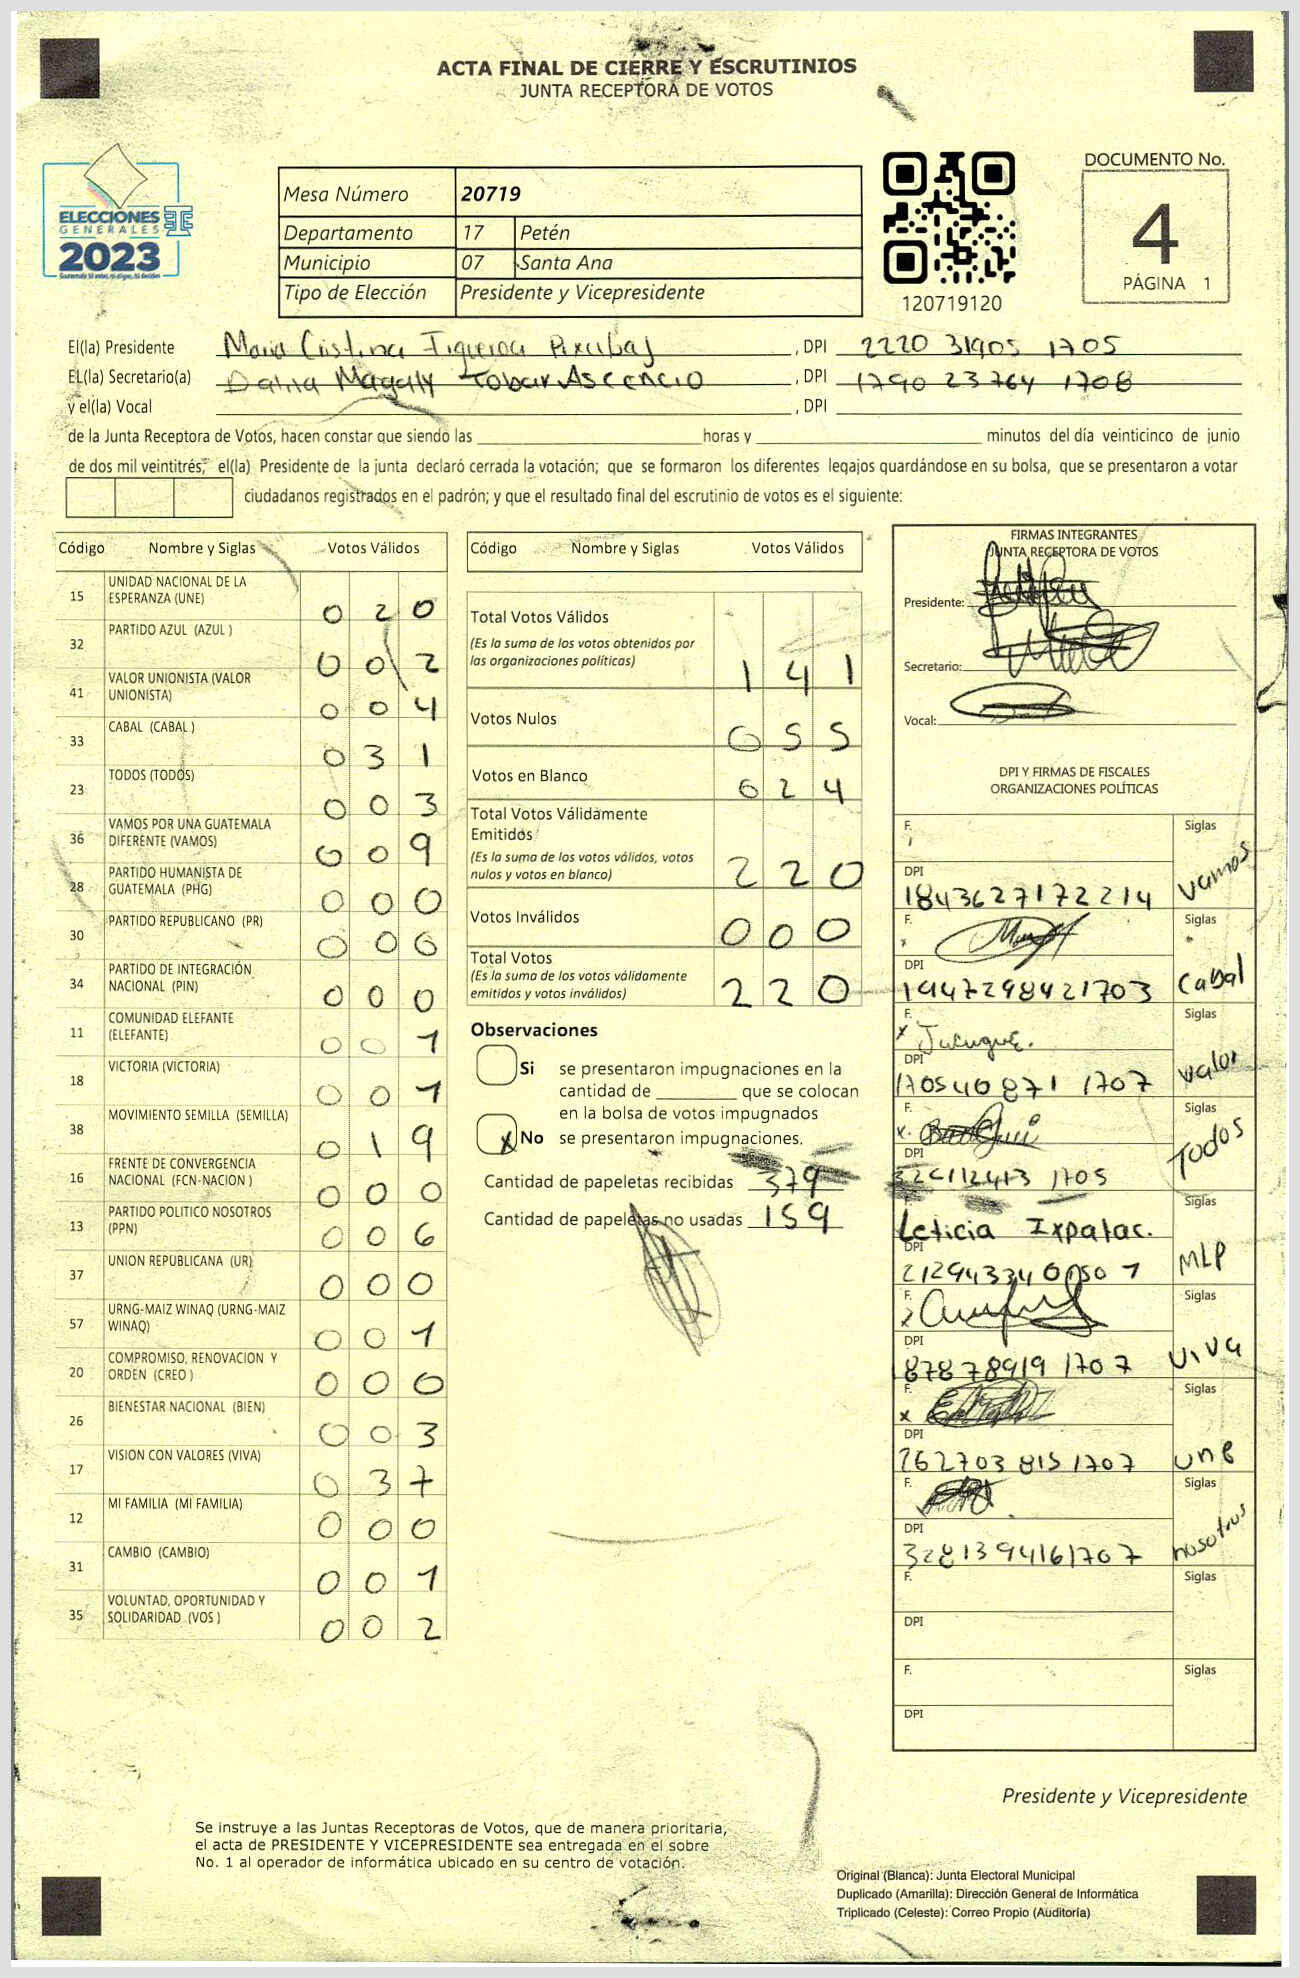 ACTA FINAL DE CIERRE Y ESCRUTINIOS
JUNTA RECEPTORA DE VOTOS
ELECCIONES
GENERALES
2023
Mesa Número 20719
Departamento 17 Petén
Municipio 07 Santa Ana
Tipo de Elección Presidente y Vicepresidente
120719120
DOCUMENTO No.
4
PÁGINA 1
El(la) Presidente Maria Cristina Figueroa Pixabaj , DPI 2220 31905 1705
EL(la) Secretario(a) Magaly Tobar Ascencio , DPI 1790 23764 1708
y el(la) Vocal , DPI
de la Junta Receptora de Votos, hacen constar que siendo las horas y minutos del día veinticinco de junio
de dos mil veintitrés, el(la) Presidente de la junta declaró cerrada la votación; que se formaron los diferentes legajos guardándose en su bolsa, que se presentaron a votar
ciudadanos registrados en el padrón; y que el resultado final del escrutinio de votos es el siguiente:
Código Nombre y Siglas Votos Válidos
15 UNIDAD NACIONAL DE LA ESPERANZA (UNE) 0 2 0
32 PARTIDO AZUL (AZUL ) 0 0 2
41 VALOR UNIONISTA (VALOR UNIONISTA) 0 0 4
33 CABAL (CABAL ) 0 3 1
23 TODOS (TODOS) 0 0 3
36 VAMOS POR UNA GUATEMALA DIFERENTE (VAMOS) 0 0 9
28 PARTIDO HUMANISTA DE GUATEMALA (PHG) 0 0 0
30 PARTIDO REPUBLICANO (PR) 0 0 6
34 PARTIDO DE INTEGRACIÓN NACIONAL (PIN) 0 0 0
11 COMUNIDAD ELEFANTE (ELEFANTE) 0 0 1
18 VICTORIA (VICTORIA) 0 0 1
38 MOVIMIENTO SEMILLA (SEMILLA) 0 1 9
16 FRENTE DE CONVERGENCIA NACIONAL (FCN-NACION ) 0 0 0
13 PARTIDO POLITICO NOSOTROS (PPN) 0 0 6
37 UNION REPUBLICANA (UR) 0 0 0
57 URNG-MAIZ WINAQ (URNG-MAIZ WINAQ) 0 0 1
20 COMPROMISO, RENOVACION Y ORDEN (CREO ) 0 0 0
26 BIENESTAR NACIONAL (BIEN) 0 0 3
17 VISION CON VALORES (VIVA) 0 3 7
12 MI FAMILIA (MI FAMILIA) 0 0 0
31 CAMBIO (CAMBIO) 0 0 1
35 VOLUNTAD, OPORTUNIDAD Y SOLIDARIDAD (VOS ) 0 0 2
Código Nombre y Siglas Votos Válidos
Total Votos Válidos 1 4 1
(Es la suma de los votos obtenidos por
las organizaciones políticas)
Votos Nulos 0 5 5
Votos en Blanco 0 2 4
Total Votos Válidamente
Emitidos 2 2 0
(Es la suma de los votos válidos, votos
nulos y votos en blanco)
Votos Inválidos 0 0 0
Total Votos 2 2 0
(Es la suma de los votos válidamente
emitidos y votos inválidos)
Observaciones
Si se presentaron impugnaciones en la
cantidad de que se colocan
en la bolsa de votos impugnados
x No se presentaron impugnaciones.
Cantidad de papeletas recibidas 379
Cantidad de papeletas no usadas 159
FIRMAS INTEGRANTES
JUNTA RECEPTORA DE VOTOS
Presidente:
Secretario:
Vocal:
DPI Y FIRMAS DE FISCALES
ORGANIZACIONES POLÍTICAS
F. Siglas
DPI 1843627172214 Vamos
F. Siglas
DPI 1947298421703 Cabal
F. Siglas
DPI 170540871 1707 Valor
F. Siglas
DPI 1705 Todos
F. Leticia Ixpatac. Siglas
DPI MLP
F. Siglas
DPI 87878919 1707 Viva
F. Siglas
DPI 262703 815 1707 une
F. Siglas
DPI 3281394161707 nosotros
F. Siglas
DPI
F. Siglas
DPI
Presidente y Vicepresidente
Se instruye a las Juntas Receptoras de Votos, que de manera prioritaria,
el acta de PRESIDENTE Y VICEPRESIDENTE sea entregada en el sobre
No. 1 al operador de informática ubicado en su centro de votación.
Original (Blanca): Junta Electoral Municipal
Duplicado (Amarilla): Dirección General de Informática
Triplicado (Celeste): Correo Propio (Auditoría)